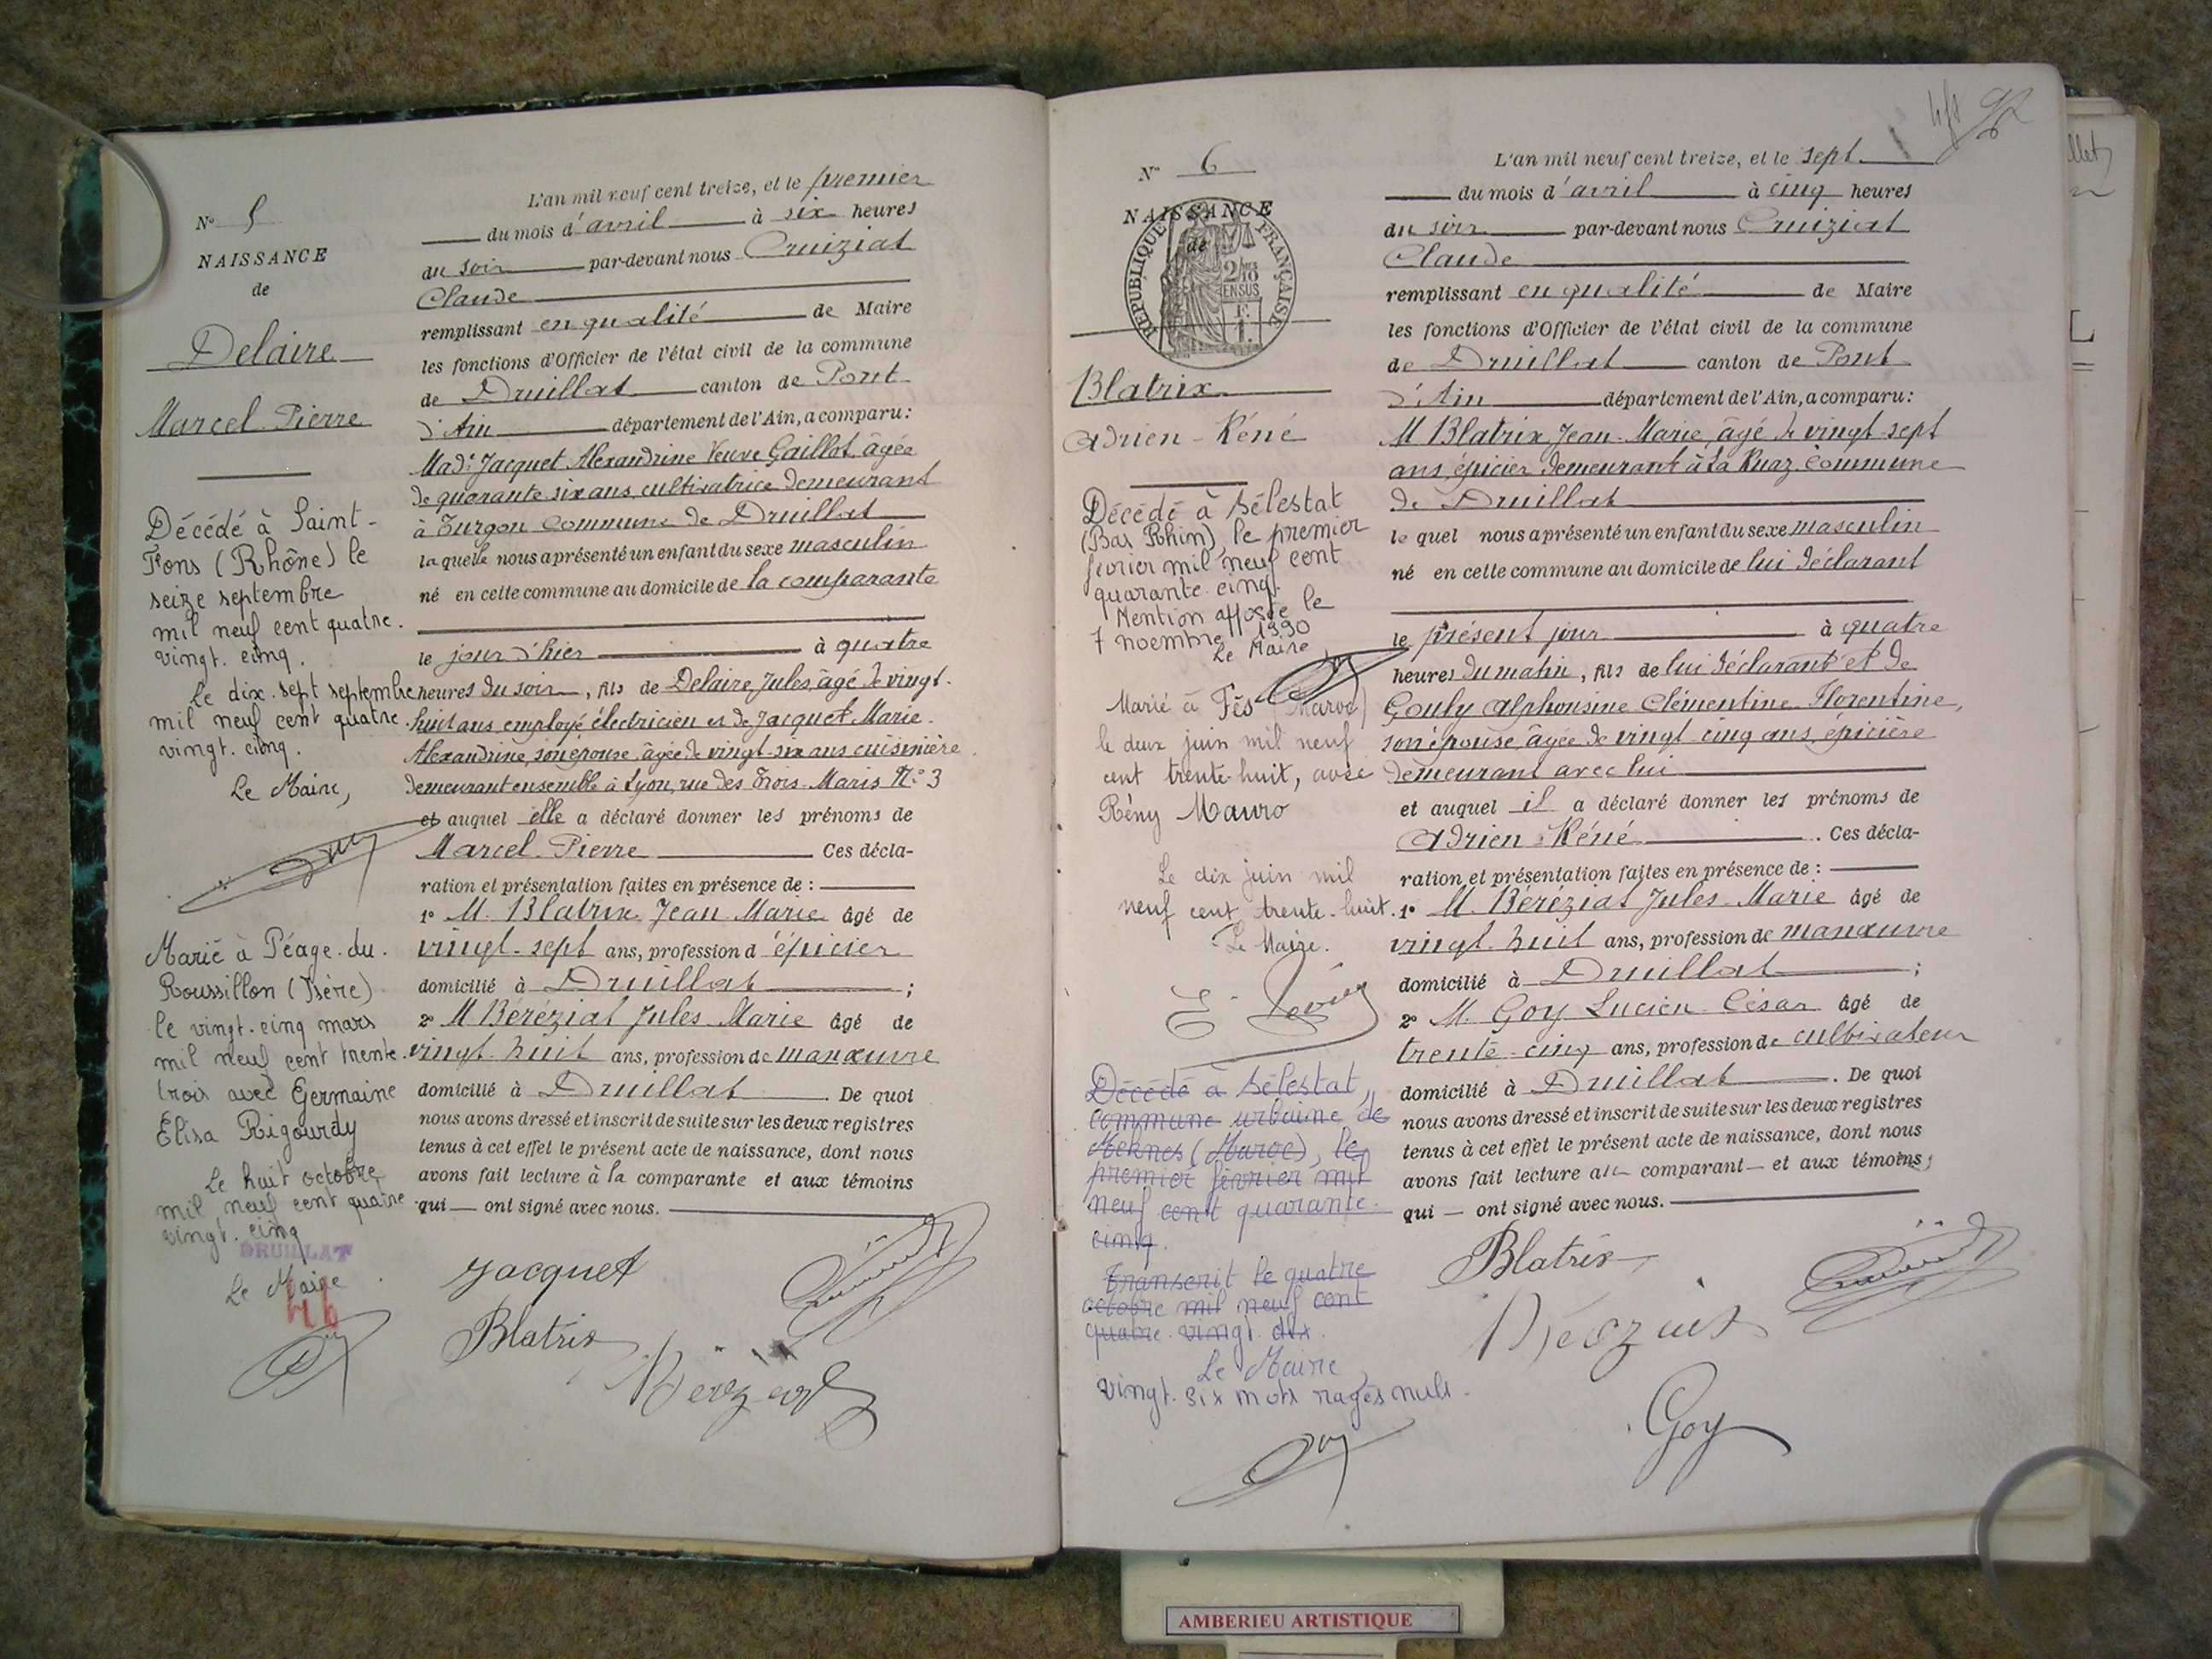 N° 5
NAISSANCE
de
Delaire
Marcel Pierre
Décédé à Saint-
Fons (Rhône) le
seize septembre
mil neuf cent quatre.
vingt. cinq.
Le dix. sept septembre
mil neuf cent quatre.
vingt. cinq.
Le Maire,
Marié à Péage. du.
Roussillon (Isère)
le vingt. cinq mars
mil neuf cent trente.
trois avec Germaine
Élisa Rigourdy
Le huit octobre
mil neuf cent quatre
vingt. cinq
DRUILLAT
Le Maire
46
L'an mil neuf cent treize, et le premier
du mois d'avril à six heures
du soir par-devant nous Cruiziat
Claude
remplissant en qualité de Maire
les fonctions d'Officier de l'état civil de la commune
de Druillat canton de Pont
d'Ain département de l'Ain, a comparu:
Made Jacquet Alexandrine Veuve Gaillot, âgée
de quarante six ans, cultivatrice demeurant
à Turgon commune de Druillat
laquelle nous a présenté un enfant du sexe masculin
né en cette commune au domicile de la comparante
le jour d'hier à quatre
heures du soir, fils de Delaire Jules, âgé de vingt.
huit ans employé électricien et de Jacquet Marie.
Alexandrine, son épouse âgée de vingt-six ans cuisinière
demeurant ensemble à Lyon, rue des Trois Maris N° 3
et auquel elle a déclaré donner les prénoms de
Marcel Pierre Ces décla-
ration et présentation faites en présence de :
1° M. Blatrix Jean Marie âgé de
vingt-sept ans, profession d'épicier
domicilié à Druillat ;
2° M Béréziat Jules Marie âgé de
vingt-huit ans, profession de manœuvre
domicilié à Druillat. De quoi
nous avons dressé et inscrit de suite sur les deux registres
tenus à cet effet le présent acte de naissance, dont nous
avons fait lecture à la comparante et aux témoins
qui — ont signé avec nous.
Jacquet
Blatrix
Béréziat
N° 6
NAISSANCE
de
REPUBLIQUE FRANÇAISE
2/10
EN SUS
Blatrix
Adrien-Réné
Décédé à Sélestat
(Bas Rhin), le premier
février mil neuf cent
quarante. cinq.
Mention apposée le
7 novembre 1990
Le Maire
Marié à Fès (Maroc)
le deux juin mil neuf
cent trente-huit, avec
Rény Mauro
Le dix juin mil
neuf cent trente-huit.
Le Maire.
Décédé à Sélestat,
commune urbaine de
Meknes (Maroc), le
premier février mil
neuf cent quarante.
cinq.
Transcrit le quatre
octobre mil neuf cent
quatre. vingt. dix.
Le Maire
Vingt. six mots rayés nuls.
L'an mil neuf cent treize, et le sept
du mois d'avril à cinq heures
du soir par-devant nous Cruiziat
Claude
remplissant en qualité de Maire
les fonctions d'Officier de l'état civil de la commune
de Druillat canton de Pont
d'Ain département de l'Ain, a comparu:
M Blatrix Jean-Marie, âgé de vingt-sept
ans, épicier demeurant à La Ruaz commune
de Druillat
lequel nous a présenté un enfant du sexe masculin
né en cette commune au domicile de lui déclarant
le présent jour à quatre
heures du matin, fils de lui déclarant et de
Gouly Alphonsine Clémentine Florentine,
son épouse, âgée de vingt cinq ans, épicière
demeurant avec lui
et auquel il a déclaré donner les prénoms de
Adrien Réné. Ces décla-
ration et présentation faites en présence de :
1° M. Béréziat Jules Marie âgé de
vingt-huit ans, profession de manœuvre
domicilié à Druillat ;
2° M. Goy Lucien César âgé de
trente-cinq ans, profession de cultivateur
domicilié à Druillat. De quoi
nous avons dressé et inscrit de suite sur les deux registres
tenus à cet effet le présent acte de naissance, dont nous
avons fait lecture au comparant — et aux témoins,
qui — ont signé avec nous.
Blatrix
Béréziat
Goy
AMBERIEU ARTISTIQUE